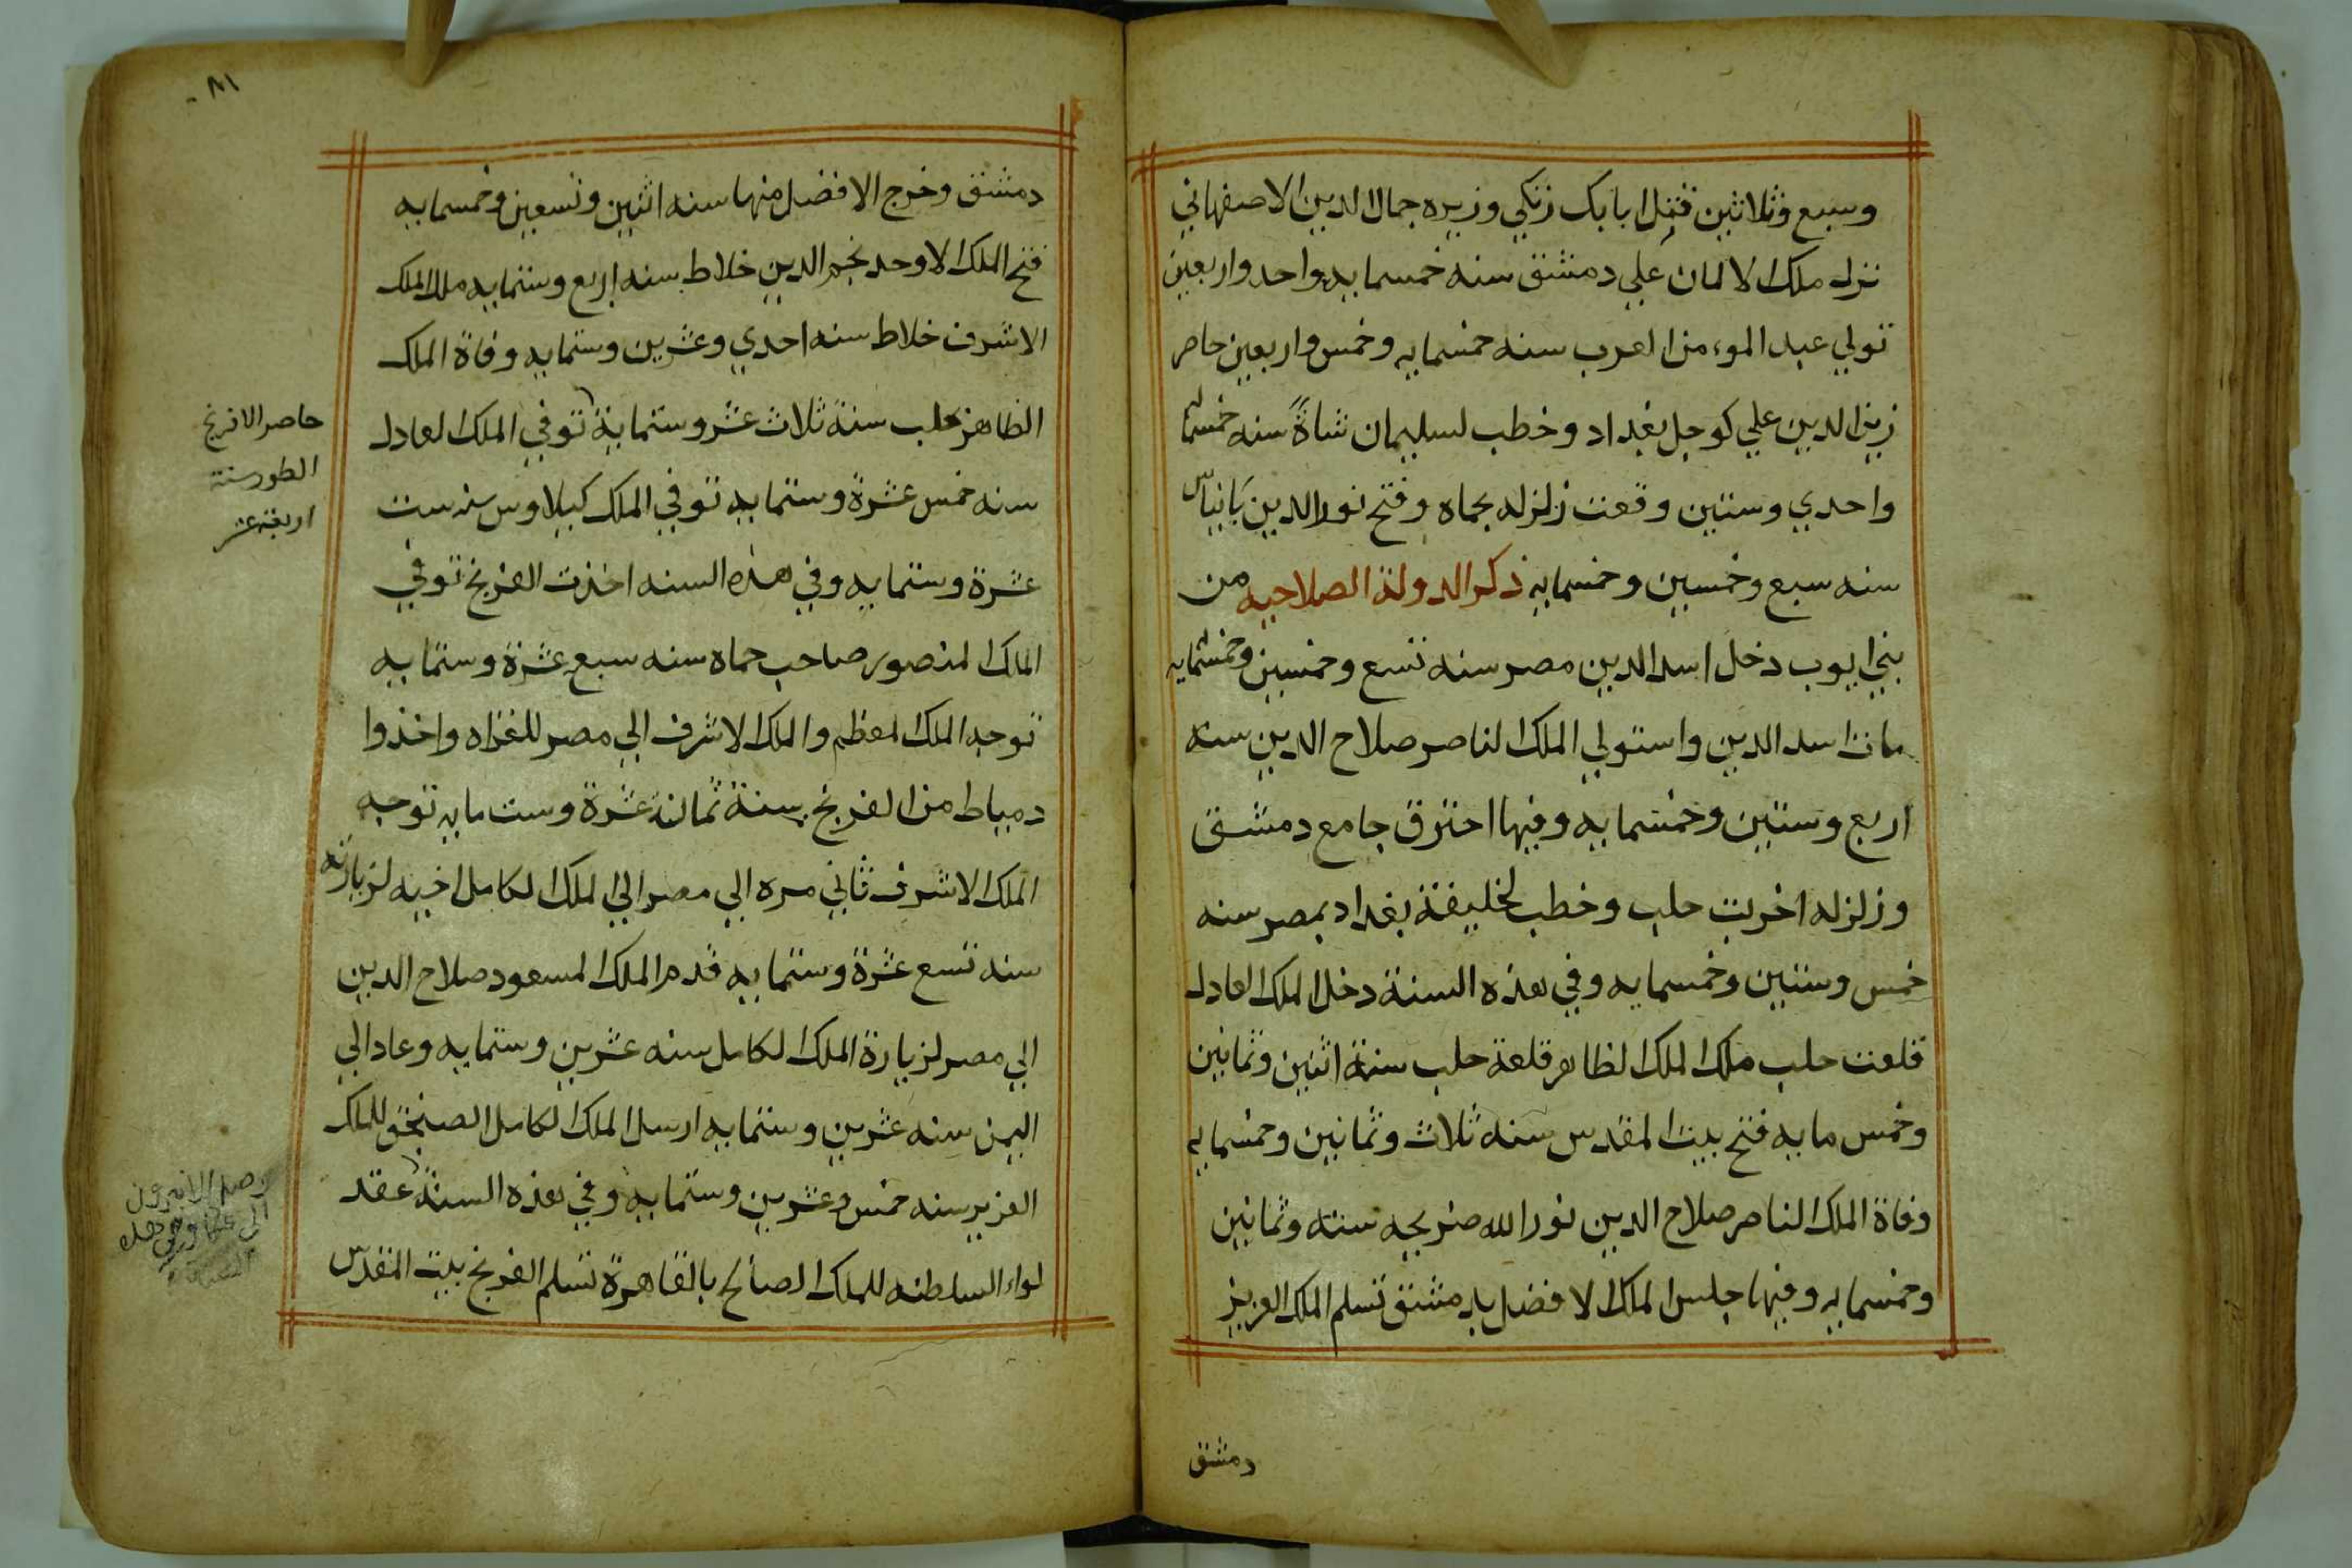 وسبع وثلاثين قتل ابابك زنكي وزيره جمال الدين الاصفهاني
نزل ملك الالمان علي دمشق سنه خمسمايه واحد واربعين
تولي عبد المومن العرب سنه خمسمايه وخمس واربعين حاصر
زين الدين علي كوجل بغداد وخطب لسليمان شاة سنه خمسما
واحدي وستين وقعت زلزله بحماه وفتح نور الدين بانياس
سنه سبع وخمسين وخمسمايه ذكر الدولة الصلاحيه من
بني ايوب دخل اسد الدين مصر سنه تسع وخمسين وخمسمايه
مات اسد الدين واستولي الملك الناصر صلاح الدين سنه
اربع وستين وخمسمايه وفيها احترق جامع دمشق
وزلزله اخربت حلب وخطب لخليفة بغداد بمصر سنه
خمس وستين وخمسمايه وفي هذه السنة دخل الملك العادل
قلعت حلب ملك الملك الظاهر قلعة حلب سنة اثنين وثمانين
وخمس مايه فتح بيت المقدس سنه ثلاث وثمانين وخمسمايه
وفاة الملك الناصر صلاح الدين نور الله ضريحه سنته وثمانين
وخمسمايه وفيها جلس الملك الافضل بدمشق تسلم الملك العزيز
دمشق
٨١
دمشق وخرج الافضل منها سنه اثنين وتسعين وخمسمايه
فتح الملك الاوحد نجم الدين خلاط سنه اربع وستمايه ملك الملك
الاشرف خلاط سنه احدي وعشرين وستمايه وفاة الملك
الظاهر بحلب سنة ثلاث عشر وستماية توفي الملك العادل
سنه خمس عشرة وستمايه توفي الملك كيلاوس سنه ست
عشرة وستمايه وفي هذه السنه اخذت الفرنج توفي
الملك المنصور صاحب حماه سنه سبع عشرة وستمايه
توجه الملك المعظم والملك الاشرف الي مصر للغزاه واخذوا
دمياط من الفرنج سنة ثمان عشرة وست مايه توجه
الملك الاشرف ثاني مره الي مصر الي الملك الكامل اخيه لزيارته
سنه تسع عشرة وستمايه قدم الملك المسعود صلاح الدين
الي مصر لزيارة الملك الكامل سنه عشرين وستمايه وعاد الي
اليمن سنه عشرين وستمايه ارسل الملك الكامل الصنجق للملك
العزيز سنه خمس وعشرين وستمايه وفي هذه السنة عقد
لواء السلطنه للملك الصالح بالقاهرة تسلم الفرنج بيت المقدس
حاصر الافرنج
الطور سنة
اربعة عشر
وصل
الي عكا